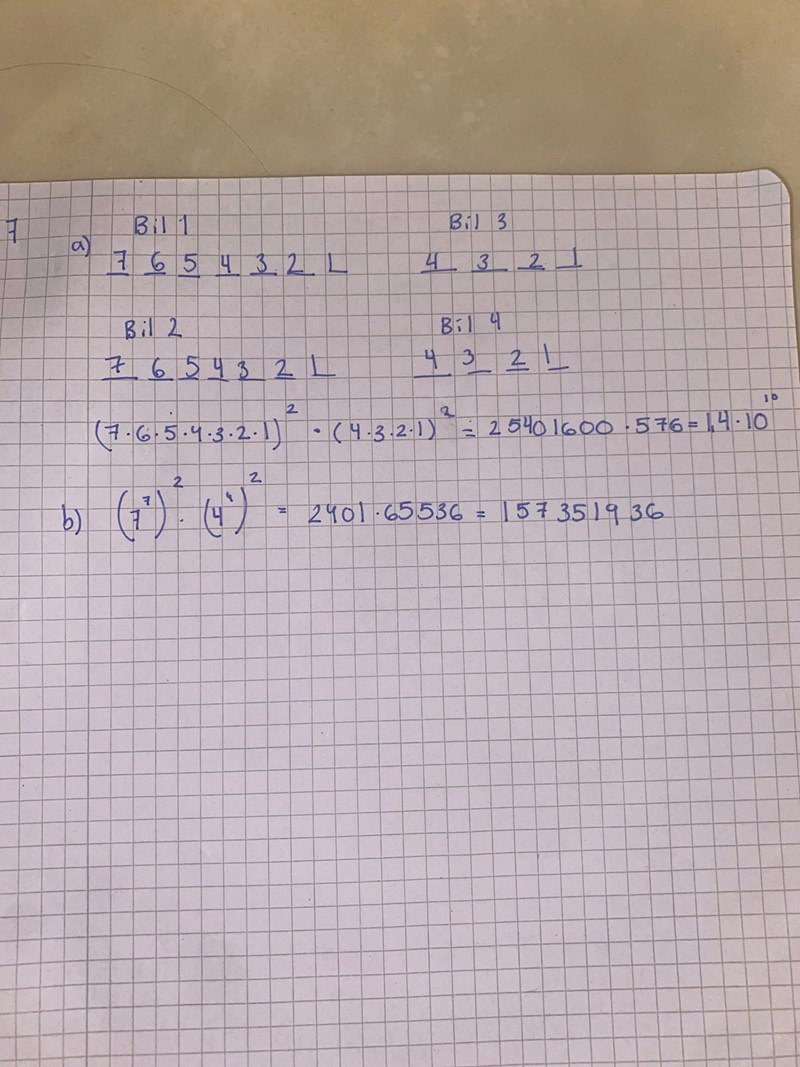 7
Bil 1 Bil 3
a) 7 6 5 4 3 2 1 4 3 2 1
Bil 2 Bil 4
7 6 5 4 3 2 1 4 3 2 1
(7·6·5·4·3·2·1)² · (4·3·2·1)² = 25401600 · 576 = 1,4 · 10¹⁰
b) (7⁷)² · (4⁴)² = 2401 · 65536 = 157351936